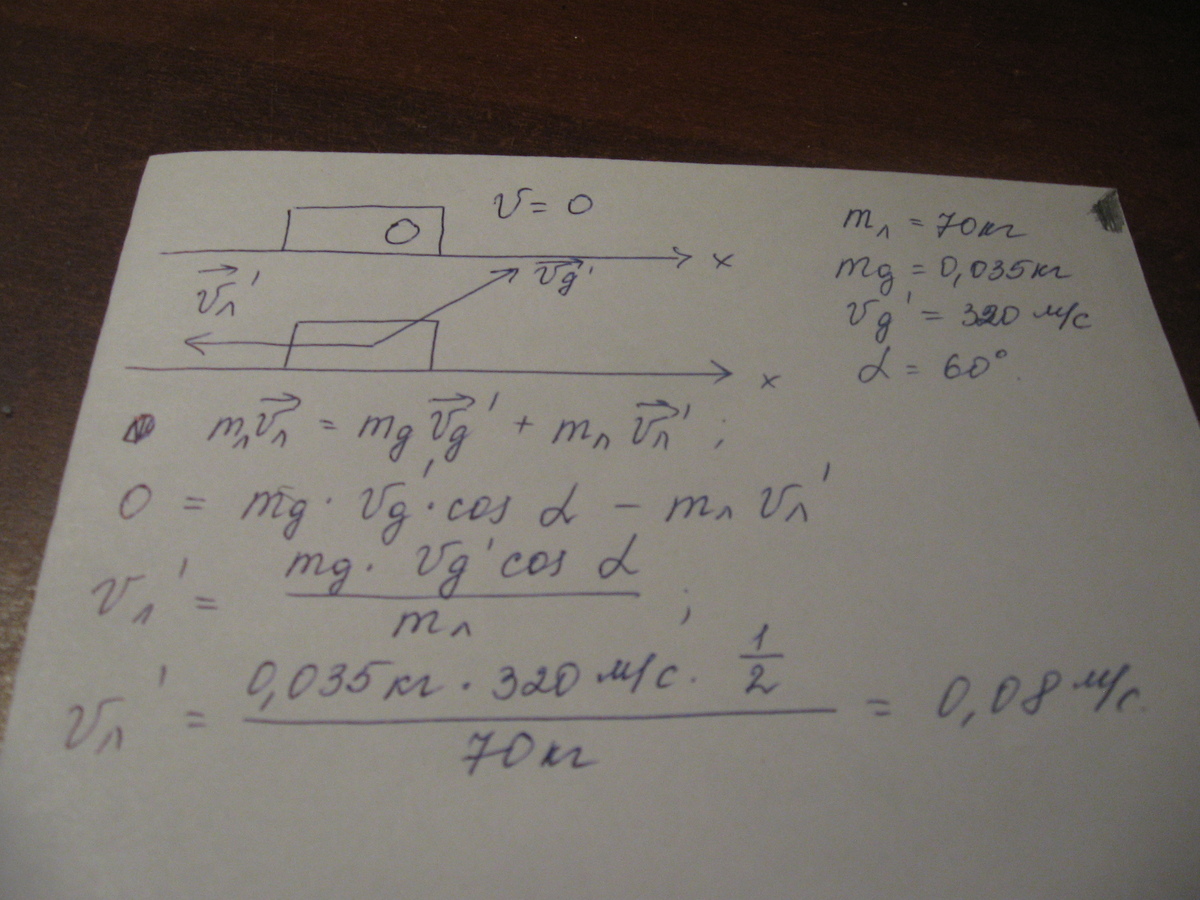 v = 0
O
x
v⃗л'
v⃗g'
x
mл = 70кг
mg = 0,035кг
vg' = 320 м/с
α = 60°
mлv⃗л = mg v⃗g' + mл v⃗л' ;
0 = mg · vg' · cos α − mл vл'
vл' = mg · vg' cos α / mл ;
vл' = 0,035кг · 320 м/с · 1/2 / 70кг = 0,08 м/с